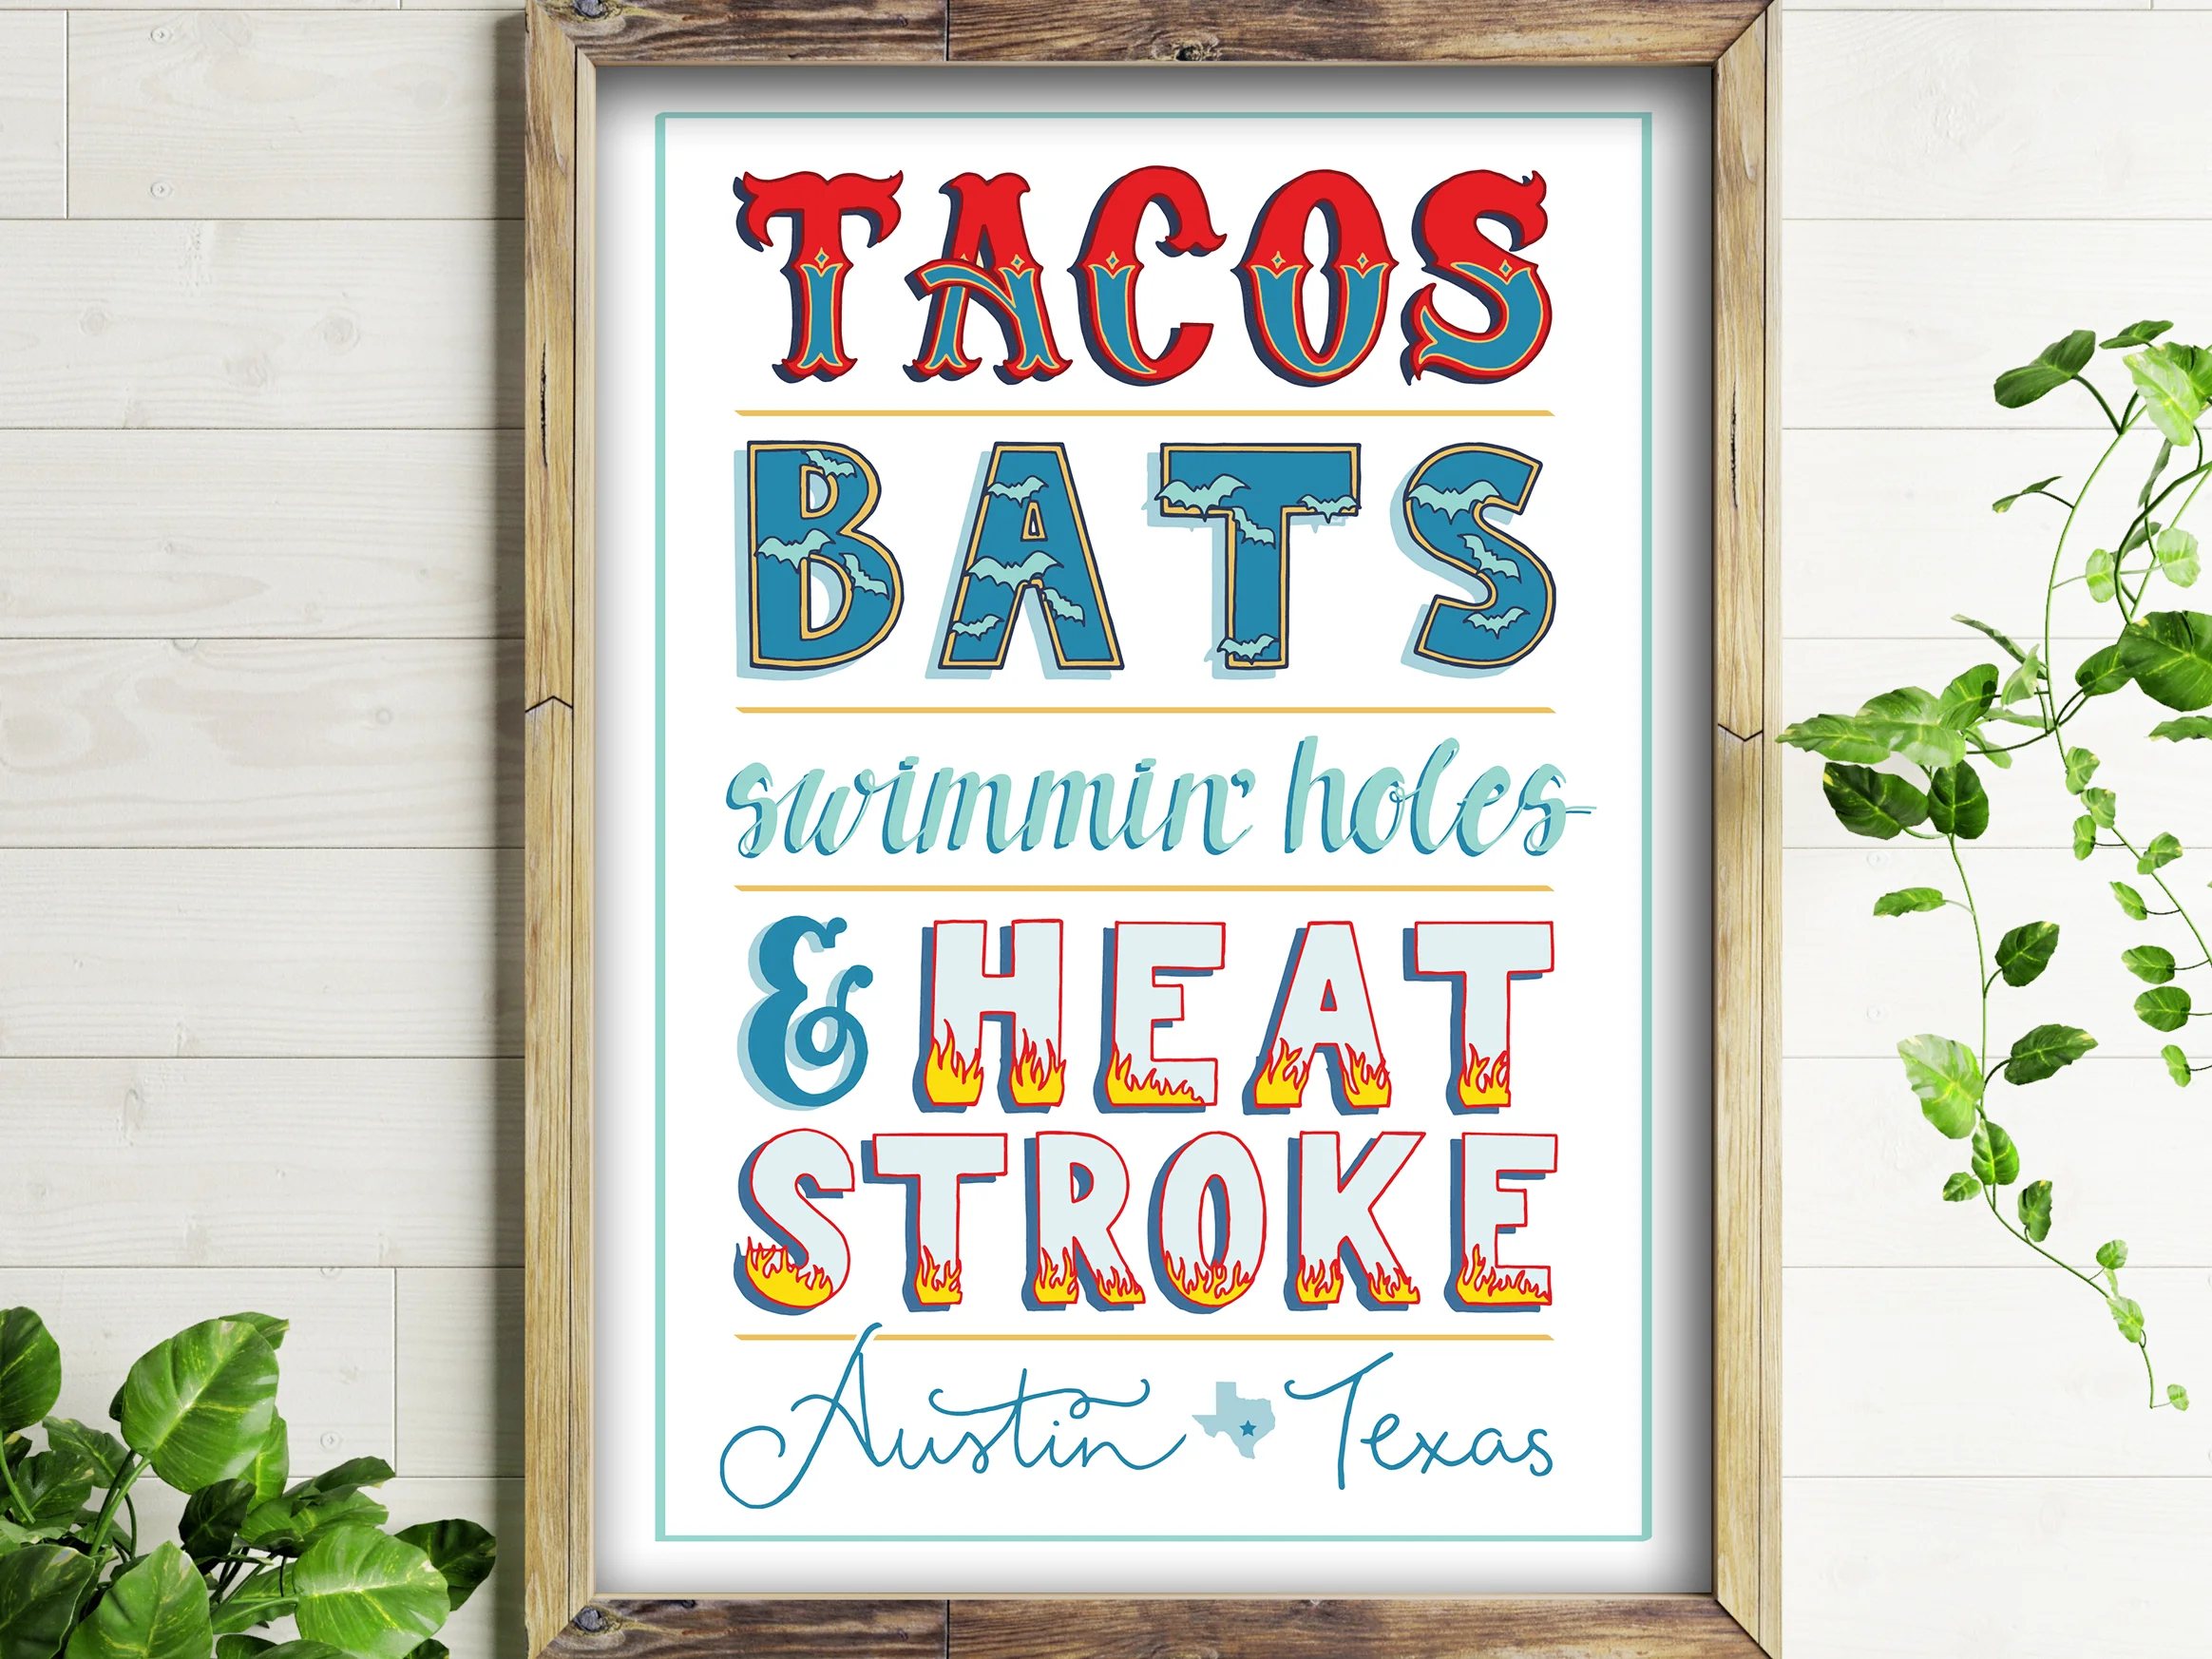 TACOS
BATS
swimmin' holes
& HEAT
STROKE
Austin Texas